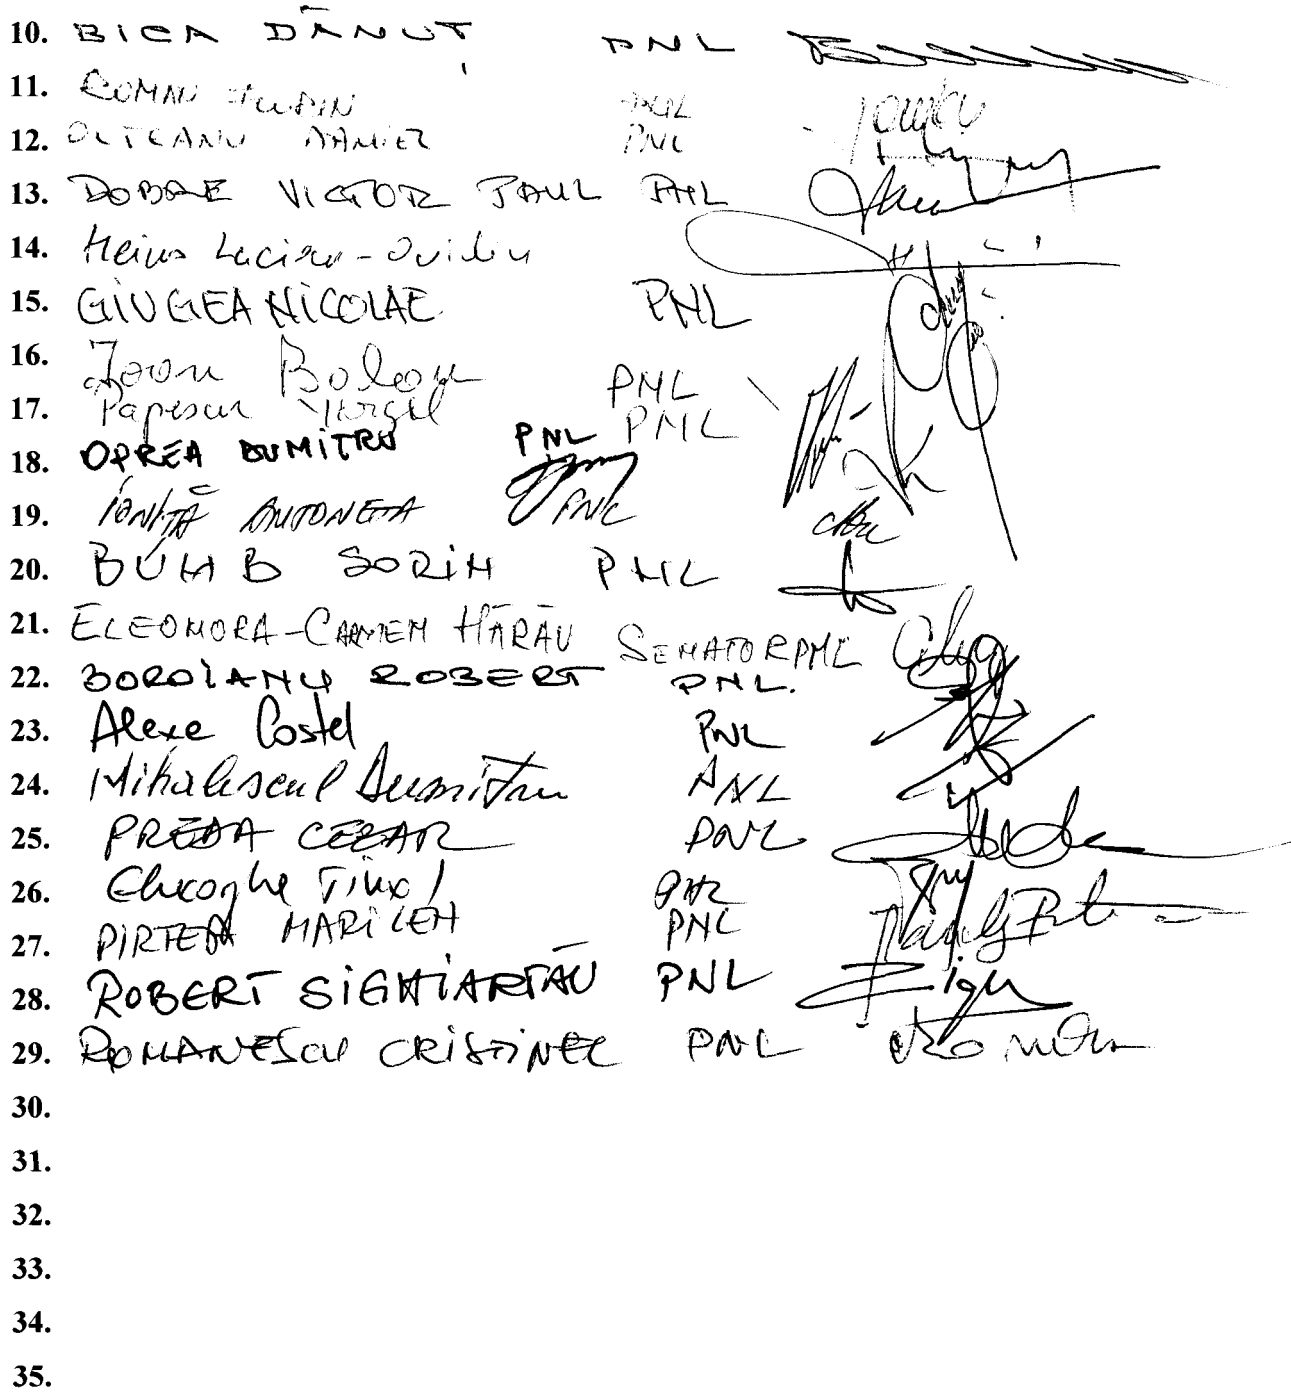 10. BICA DĂNUȚ PNL
11. ROMAN PNL
12. OLTEANU DANIEL PNL
13. DOBRE VICTOR PAUL PNL
14. Heius Lucian-Ovidiu
15. GIUGEA NICOLAE PNL
16. Ioan Bolog PNL
17. Popescu Virgil PNL
18. OPREA DUMITRU PNL
19. IONIȚĂ ANTONETA PNL
20. BUMB SORIN PNL
21. ELEONORA-CARMEN HĂRĂU SENATOR PNL
22. BOROIANU ROBERT PNL.
23. Alexe Costel PNL
24. Mihalescul Dumitru PNL
25. PREDA CEZAR PNL
26. Gheorghe Tinel PNL
27. PIRTEA MARILEN PNL
28. ROBERT SIGHIARTĂU PNL
29. ROMANESCU CRISTINEL PNL
30.
31.
32.
33.
34.
35.